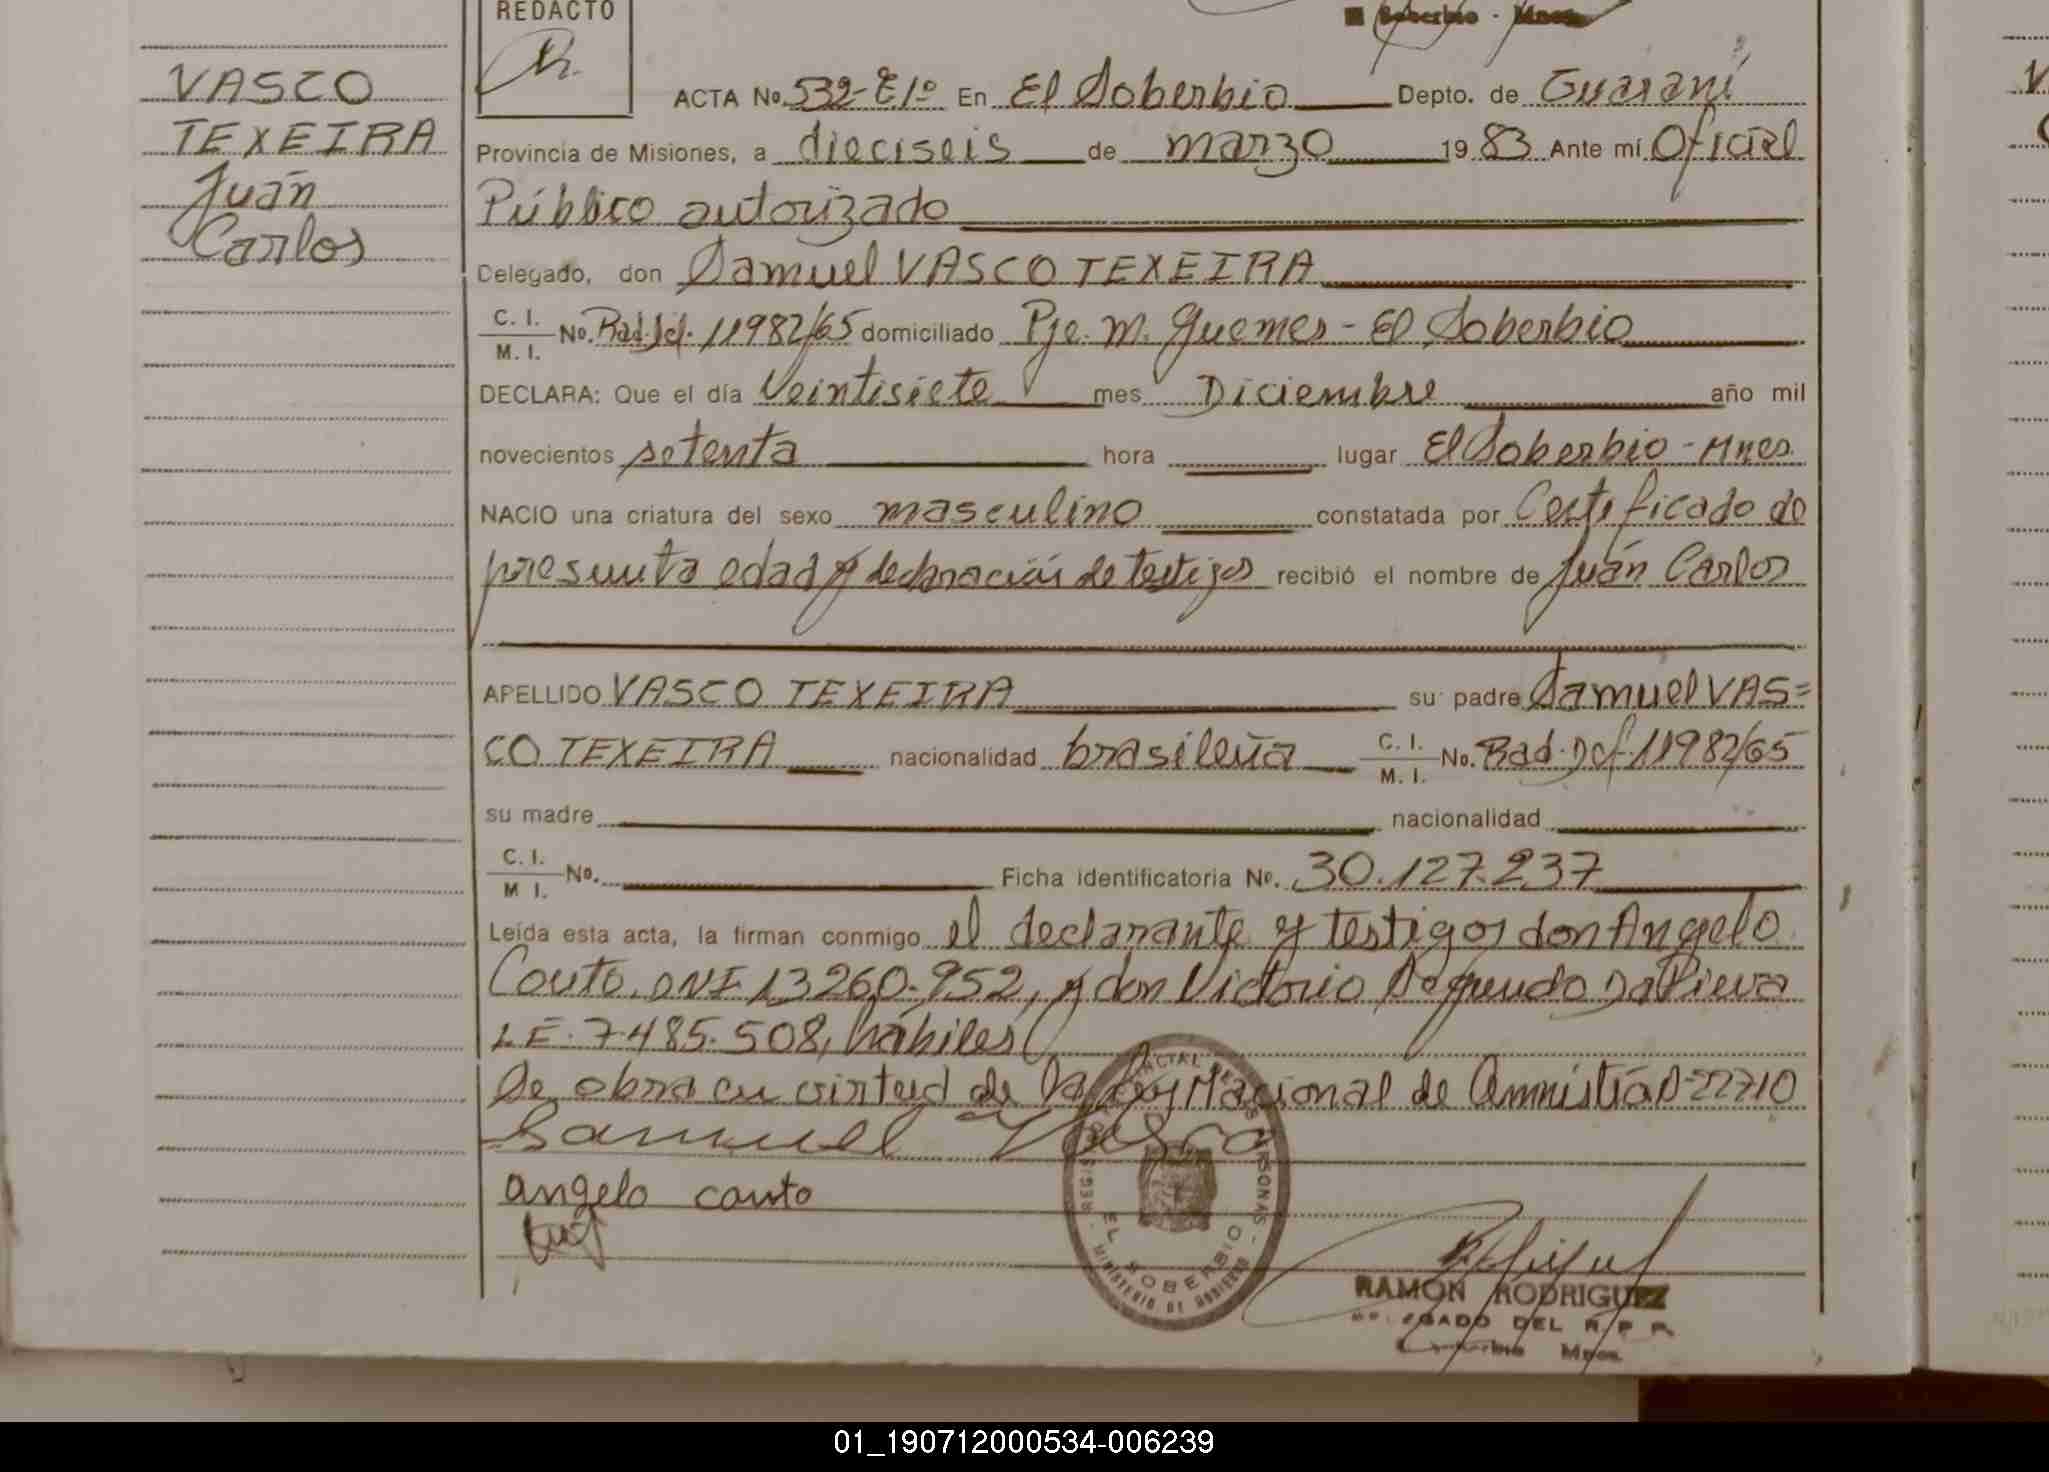 REDACTO
Soberbio - Mnes
VASCO
TEXEIRA
Juán
Carlos
ACTA No. 532-E1º En El Soberbio Depto. de Guaraní
Provincia de Misiones, a dieciseis de marzo 1983 Ante mí Oficial
Público autorizado
Delegado, don Samuel VASCO TEXEIRA
C. I. / M. I. No. Rad. Def. 11982/65 domiciliado Pje. M. Guemes - El Soberbio
DECLARA: Que el día Veintisiete mes Diciembre año mil
novecientos setenta hora lugar El Soberbio - Mnes.
NACIO una criatura del sexo masculino constatada por Certificado de
presunta edad y declaración de testigos recibió el nombre de Juán Carlos
APELLIDO VASCO TEXEIRA su padre Samuel VAS=
CO TEXEIRA nacionalidad brasileña C. I. / M. I. No. Rad. Def. 11982/65
su madre nacionalidad
C. I. / M I. No. Ficha identificatoria No. 30.127.237
Leída esta acta, la firman conmigo el declarante y testigos don Angelo
Couto. DNI 13260.952, y don Victorio Segundo Da Pieva
L.E. 7.485.508, hábiles
Se obra en virtud de la Ley Nacional de Amnistía Nº 22710
Samuel Vasco
angelo couto
REGISTRO PROVINCIAL DE LAS PERSONAS - EL SOBERBIO - MINISTERIO DE GOBIERNO
RAMON RODRIGUEZ
DELEGADO DEL R. P. P.
Soberbio Mnes.
01_190712000534-006239